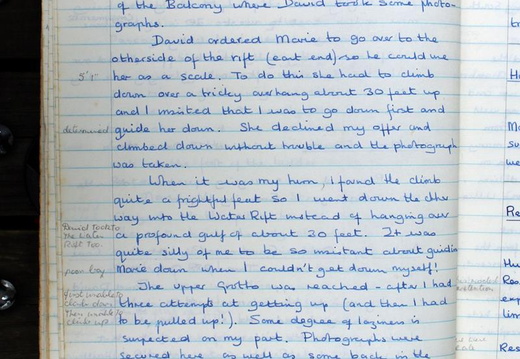 of the Balcony where David took some photo-
graphs.
David ordered Marie to go over to the
otherside of the rift (east end) so he could use
5'1" her as a scale. To do this she had to climb
down over a tricky overhang about 30 feet up
and I insisted that I was to go down first and
determined guide her down. She declined my offer and
climbed down without trouble and the photograph
was taken.
When it was my turn, I found the climb
quite a frightful feat so I went down the other
way into the Water Rift instead of hanging over
David took to
the Water
Rift too. a profound gulf of about 30 feet. It was
quite silly of me to be so insistant about guiding
poor boy Marie down when I couldn't get down myself!
The upper Grotto was reached - after I had
first unable to
climb down three attempts at getting up (and then I had
Then unable to
climb up! to be pulled up!). Some degree of laziness is
suspected on my part. Photographs were
secured here as well as some back in the